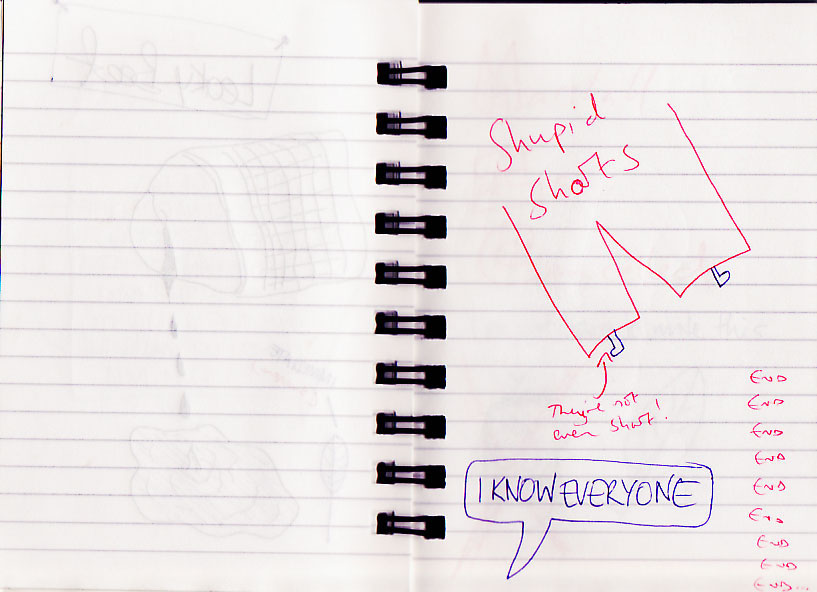 Shupid
Shorts
They're not
even short!
I KNOW EVERYONE
END
END
END
END
END
END
END
END
END...